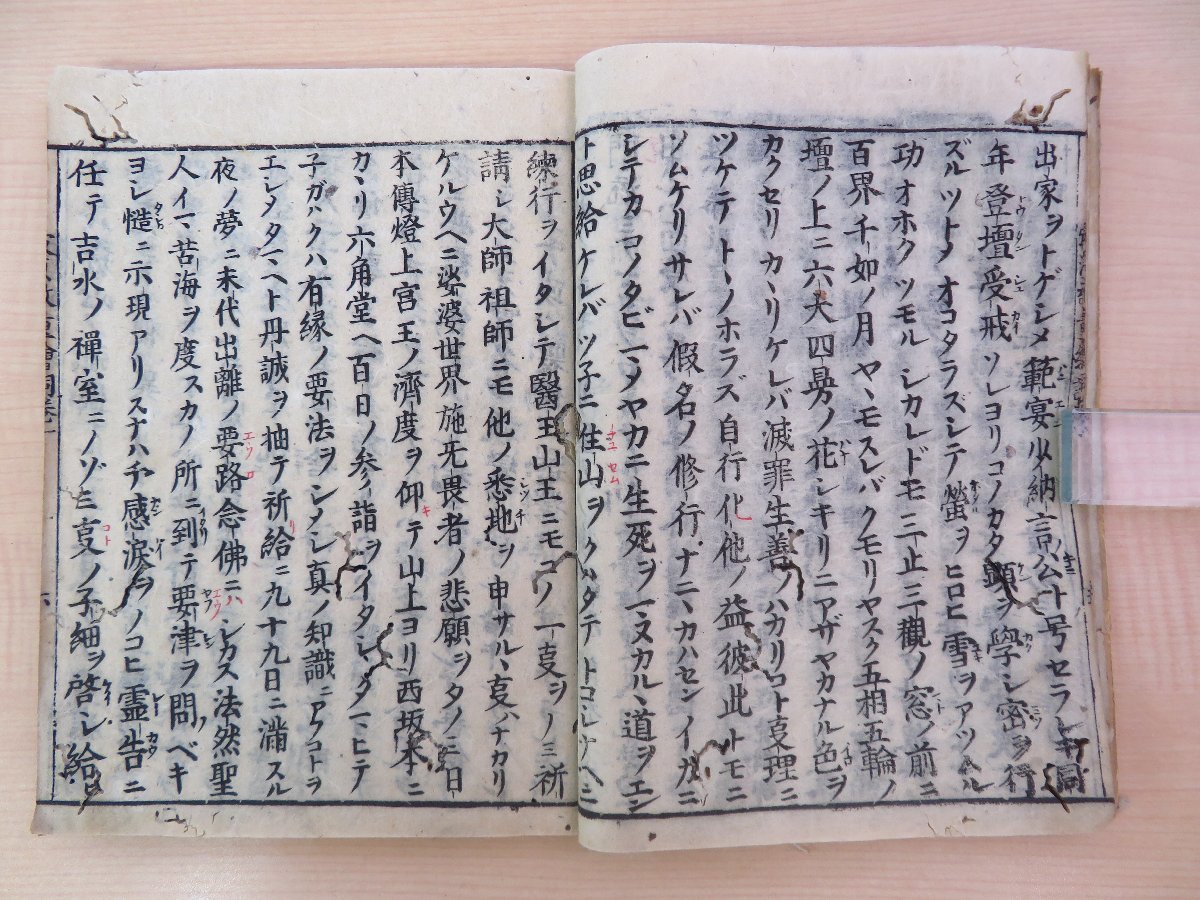 出家ヲトゲシメ範宴少納言公ト号セラレキ同
年登壇受戒ソレヨリコノカタ顕ヲ學シ密ヲ行
ズルツトメオコタラズシテ螢ヲヒロヒ雪ヲアツムル
功オホクツモルシカレドモ三止三觀ノ窓ノ前ニ
百界千如ノ月ヤヽモスレバクモリヤスク五相五輪ノ
壇ノ上ニ六大四曼ノ花シキリニアザヤカナル色ヲ
カクセリカヽリケレバ滅罪生善ノハカリコト叓理ニ
ツケテトヽノホラズ自行化他ノ益彼此トモニ
ソムケリサレバ假名ノ修行ナニヽカハセンイカニ
シテカコノタビスミヤカニ生死ヲマヌカルヽ道ヲエン
ト思給ケレバツ子ニ住山ヲクハタテトコシナヘニ
練行ヲイタシテ醫王山王ニモコノ一叓ヲノミ祈
請シ大師祖師ニモ他ノ悉地ヲ申サルヽ叓ハナカリ
ケルウヘニ娑婆世界施旡畏者ノ悲願ヲタノミ日
本傳燈上宮王ノ濟度ヲ仰テ山上ヨリ西坂本ニ
カヽリ六角堂ヘ百日ノ参詣ヲイタシタマヒテ
子ガハクハ有縁ノ要法ヲシメシ真ノ知識ニアフコトヲ
エシメタマヘト丹誠ヲ抽テ祈給ニ九十九日ニ滿スル
夜ノ夢ニ末代出離ノ要路念佛ニハシカス法然聖
人イマ苦海ヲ度スカノ所ニ到テ要津ヲ問ベキ
ヨシ慥ニ示現アリスナハチ感涙ヲノコヒ霊告ニ
任テ吉水ノ禪室ニノゾミ叓ノ子細ヲ啓シ給